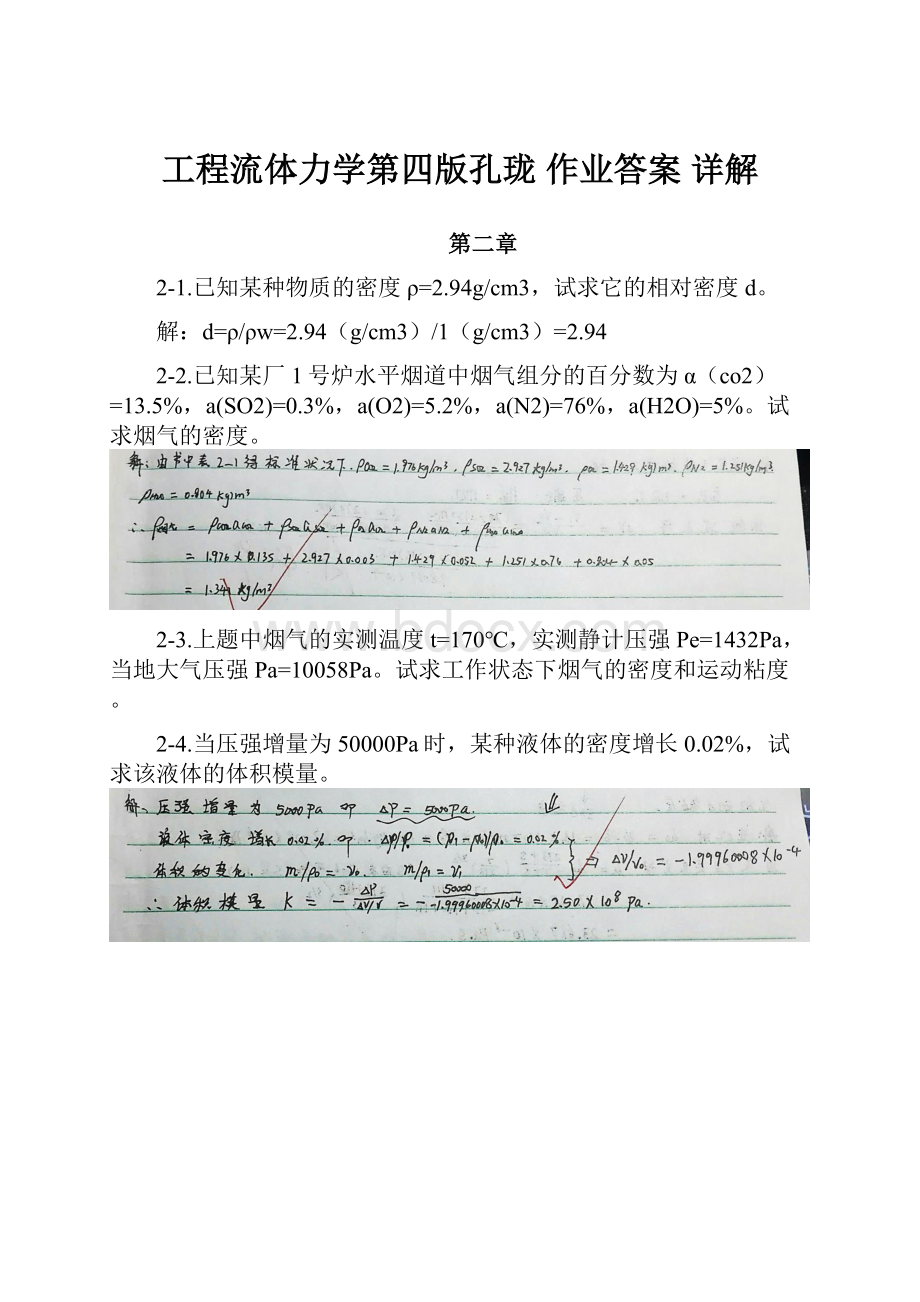 工程流体力学第四版孔珑 作业答案 详解
第二章
2-1.已知某种物质的密度ρ=2.94g/cm3，试求它的相对密度d。
解：d=ρ/ρw=2.94（g/cm3）/1（g/cm3）=2.94
2-2.已知某厂1号炉水平烟道中烟气组分的百分数为α（co2）
=13.5%，a(SO2)=0.3%，a(O2)=5.2%，a(N2)=76%，a(H2O)=5%。试
求烟气的密度。
解：由书中表2-1得标准状况下，ρCO2=1.976kg/m³，ρSO2=2.927kg/m³，ρO2=1.429kg/m³，ρN2=1.251kg/m³
ρH2O=0.804kg/m³
∴ρ烟气=ρCO2αCO2+ρSO2αSO2+ρO2αO2+ρN2αN2+ρH2OαH2O
=1.976×0.135+2.927×0.003+1.429×0.052+1.251×0.76+0.804×0.05
=1.341kg/m³
www.bdocx.com
2-3.上题中烟气的实测温度t=170℃，实测静计压强Pe=1432Pa，
当地大气压强Pa=10058Pa。试求工作状态下烟气的密度和运动粘度
。
2-4.当压强增量为50000Pa时，某种液体的密度增长0.02%，试
求该液体的体积模量。
解、压强增量为5000Pa 即 ΔP=5000Pa.
液体密度增长0.02% 即 Δρ/ρ0=(ρ1-ρ0)/ρ0=0.02%
体积的变化 m/ρ0=V0. m/ρ1=V1 ⇒ ΔV/V0=-1.99960008×10⁻⁴
∴体积模量 K=-ΔP/(ΔV/V)=-50000/(-1.99960008×10⁻⁴)=2.50×10⁸Pa.